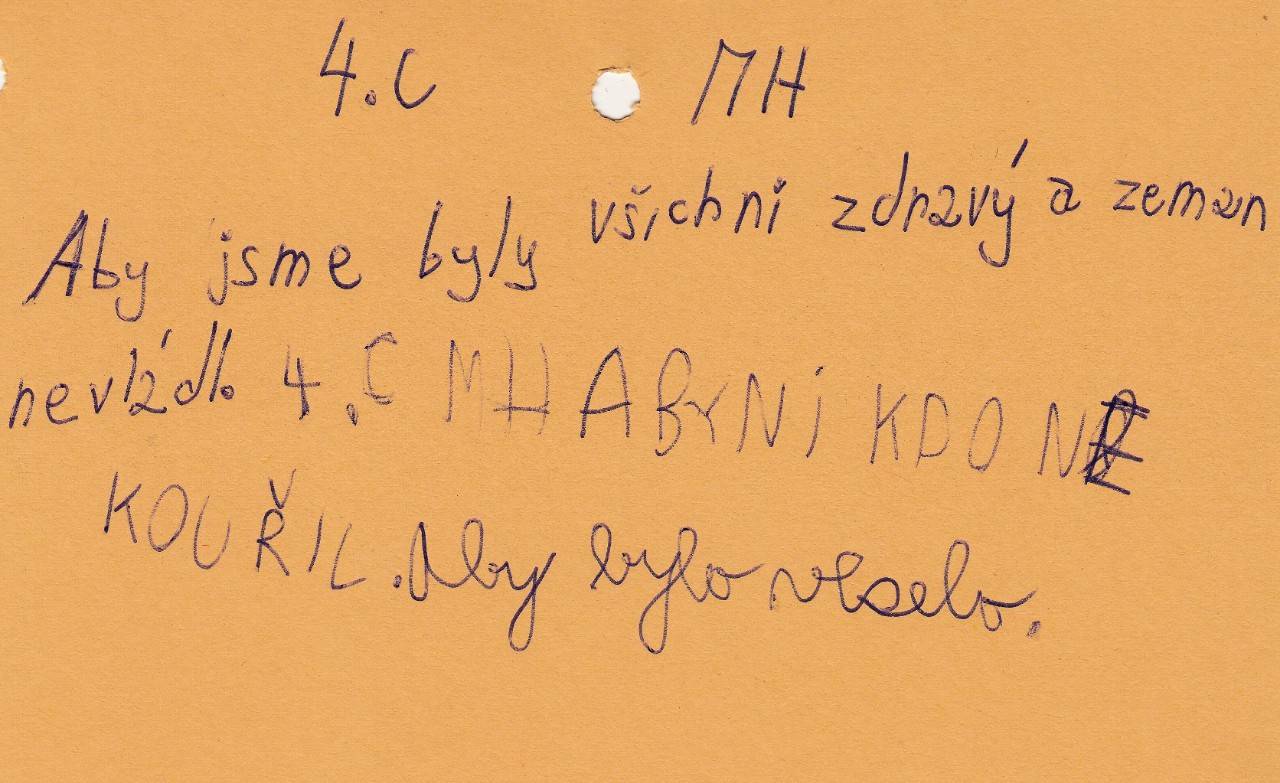 4.C MH
Aby jsme byly všichni zdravý a zeman
nevládl. 4.C MH ABY NI KDO NE
KOUŘIL. Aby bylo veselo.